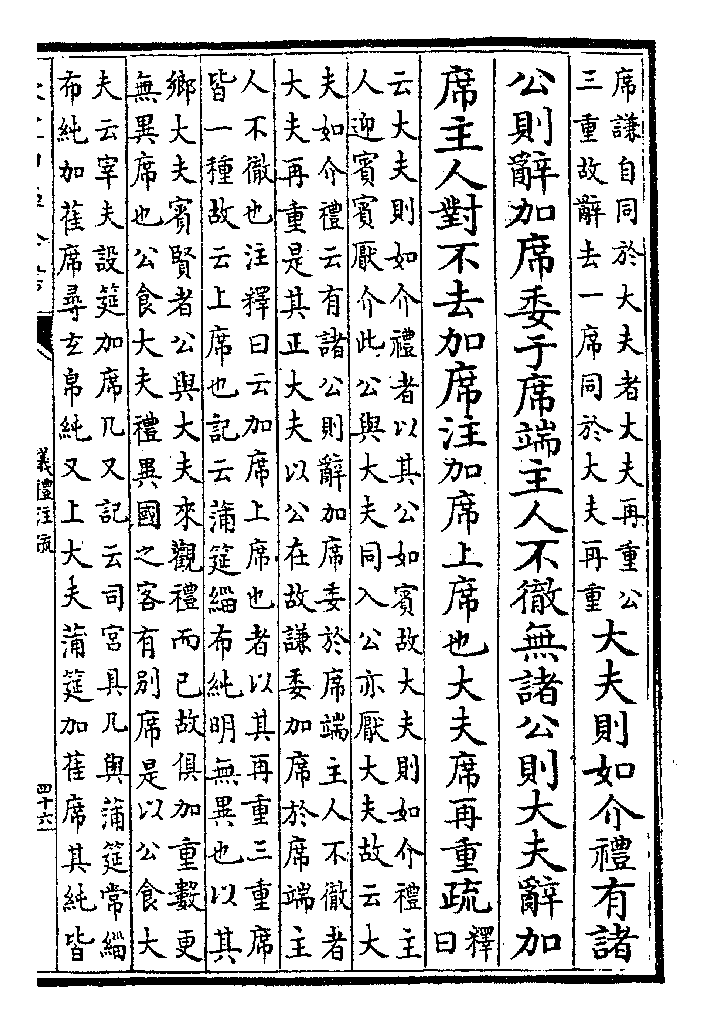 席謙自同於大夫者大夫再重公
三重故辭去一席同於大夫再重
大夫則如介禮有諸
公則辭加席委于席端主人不徹無諸公則大夫辭加
席主人對不去加席注加席上席也大夫席再重疏釋
曰
云大夫則如介禮者以其公如賓故大夫則如介禮主
人迎賓賓厭介此公與大夫同入公亦厭大夫故云大
夫如介禮云有諸公則辭加席委於席端主人不徹者
大夫再重是其正大夫以公在故謙委加席於席端主
人不徹也注釋曰云加席上席也者以其再重三重席
皆一種故云上席也記云蒲筵緇布純明無異也以其
鄉大夫賓賢者公與大夫來觀禮而已故俱加重數更
無異席也公食大夫禮異國之客有別席是以公食大
夫云宰夫設筵加席几又記云司宮具几與蒲筵常緇
布純加萑席尋玄帛純又上大夫蒲筵加萑席其純皆
儀禮注疏
四十六